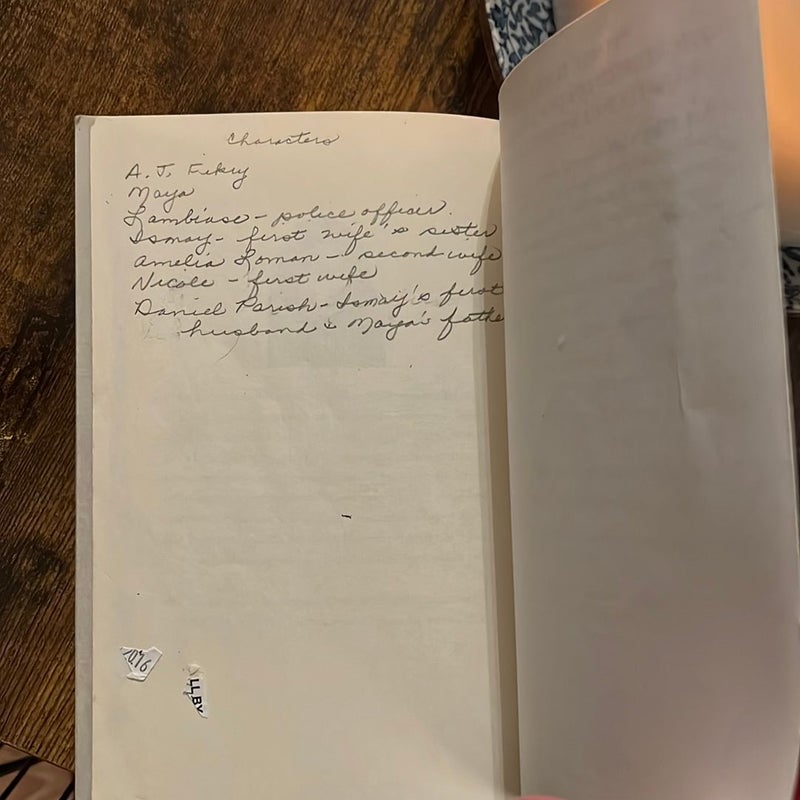 Characters
A. J. Fikry
Maya
Lambiase - police officer.
Ismay - first wife's sister
Amelia Loman - second wife
Nicole - first wife
Daniel Parish - Ismay's first
husband & Maya's fathe
1076
LLBV